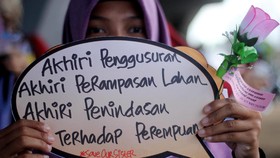 Akhiri Penggusuran
Akhiri Perampasan Lahan
Akhiri Penindasan
Terhadap Perempuan